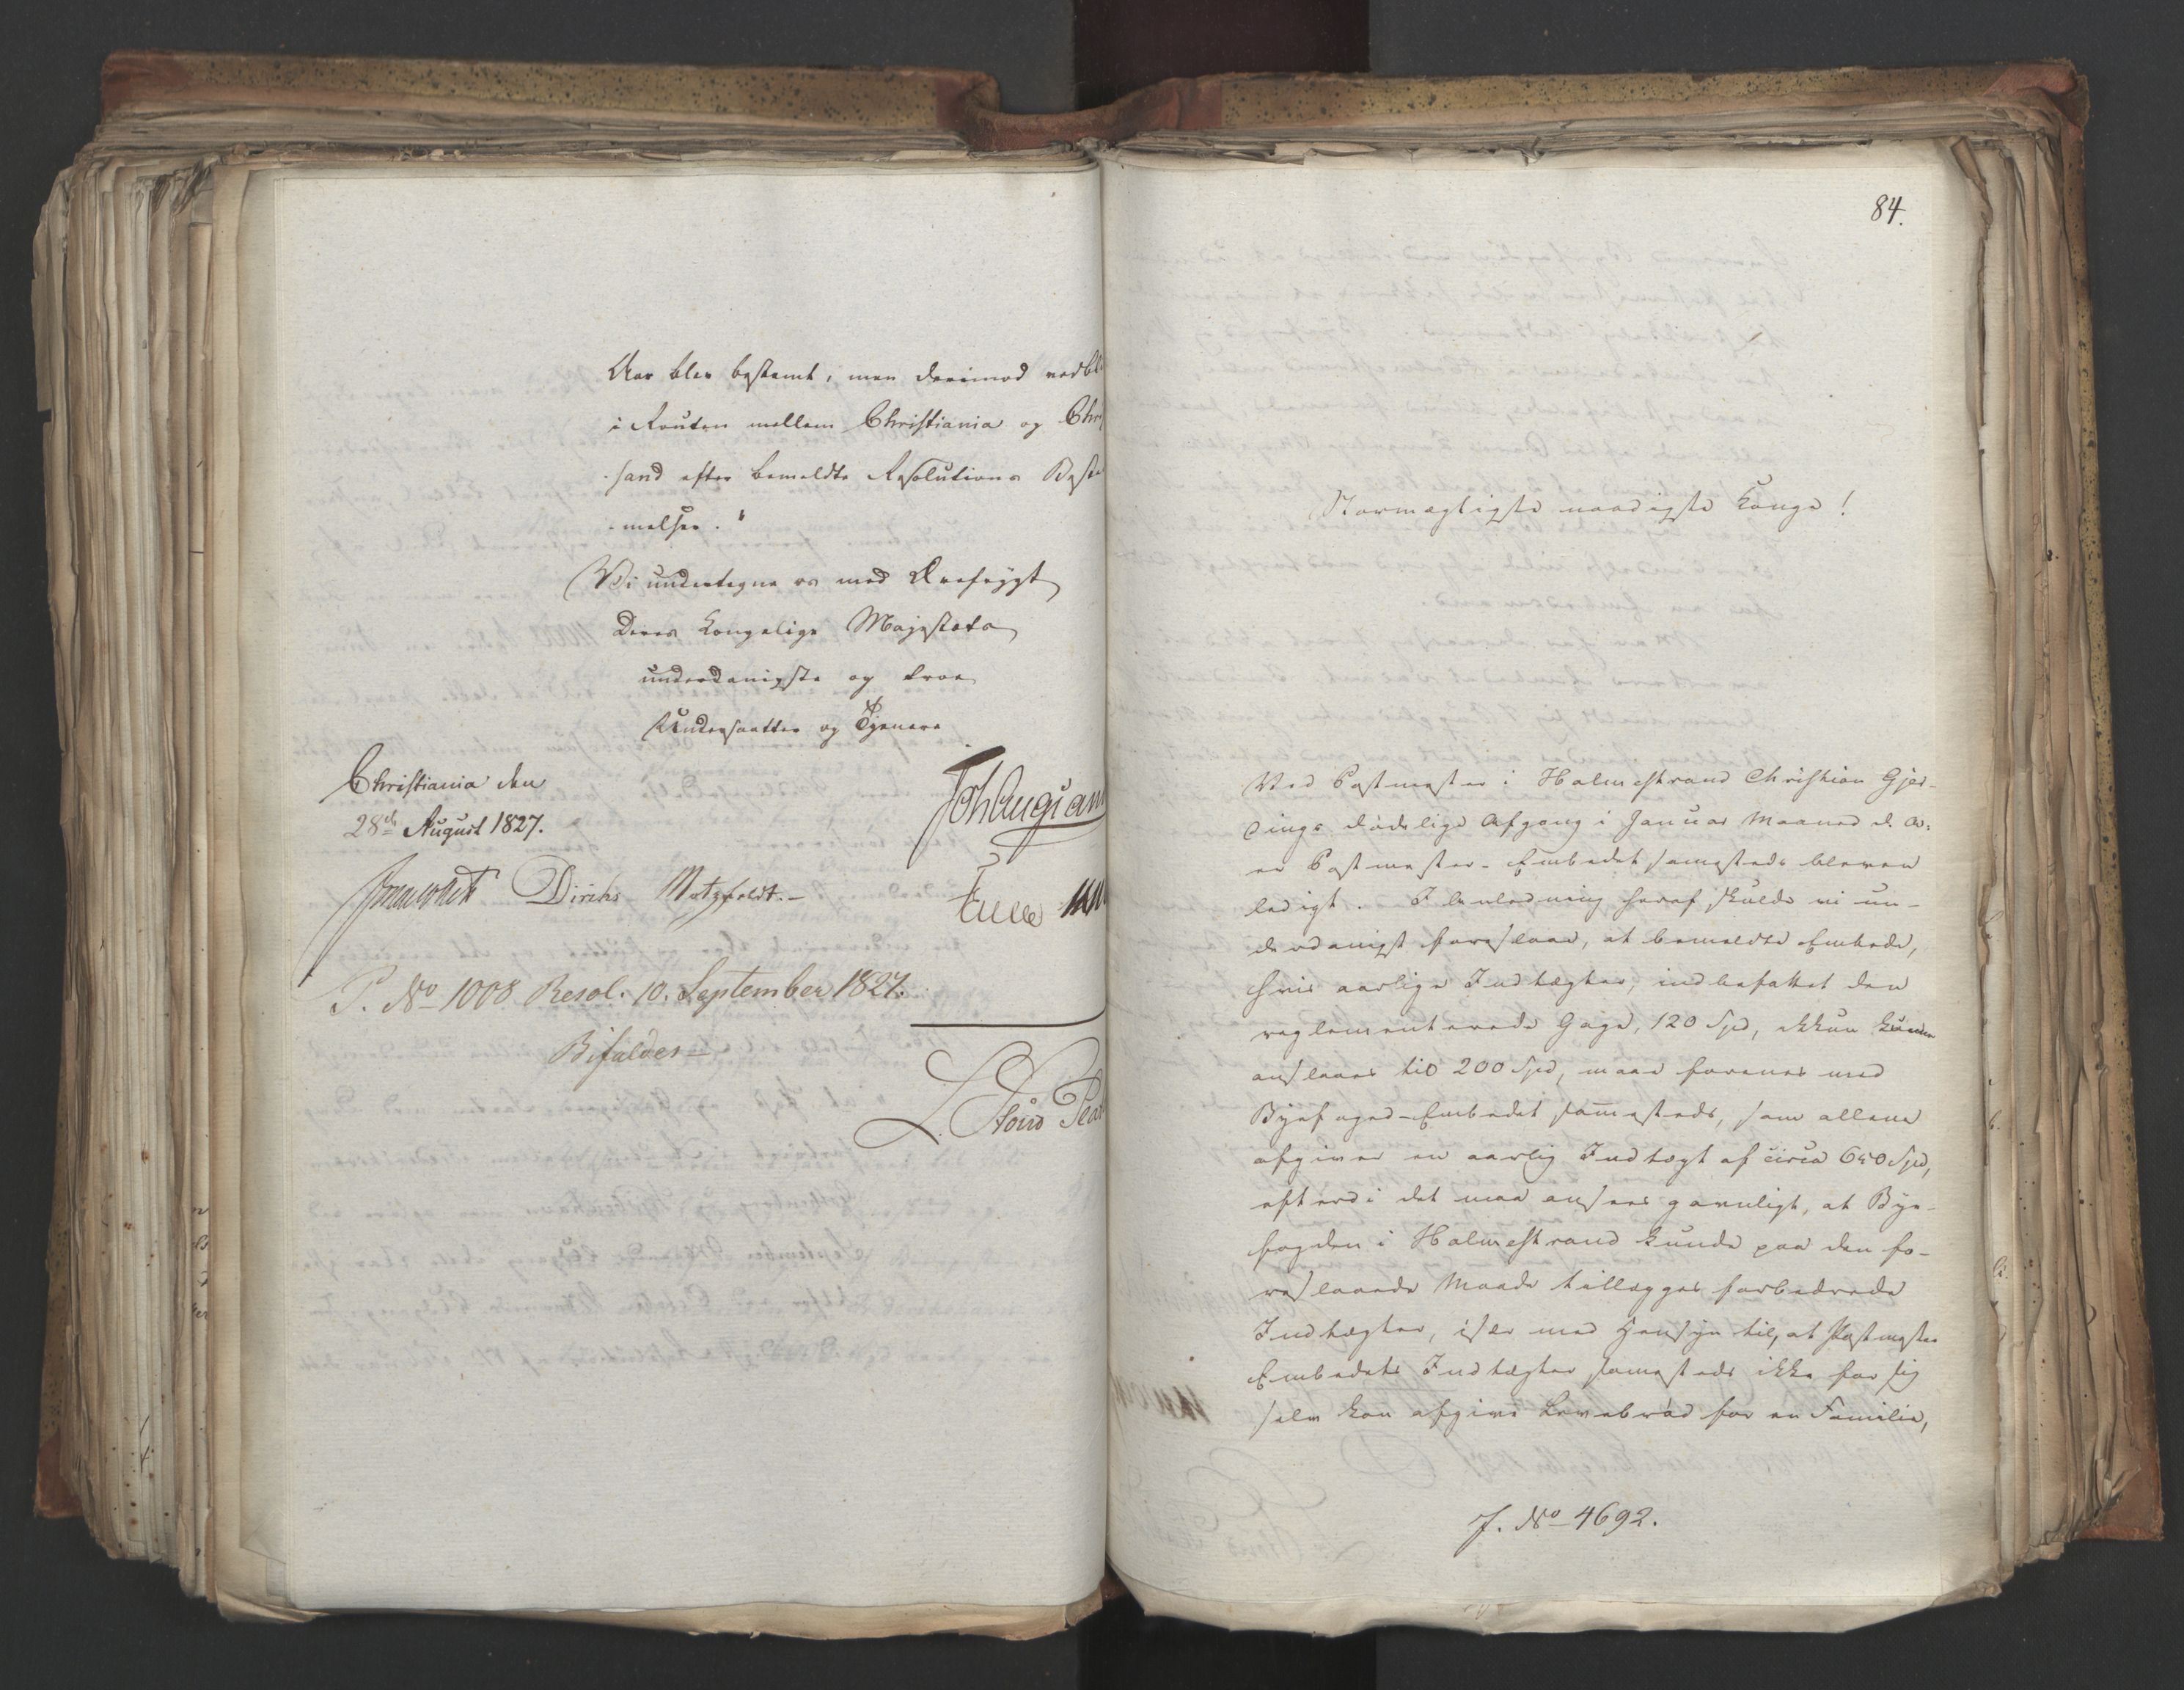 Aar blev bestemt, men derimod vedbli
i Routen mellem Christiania og Chri
-sand efter bemeldte Resolutions Beste
-melser."
Vi undertegne os med Ærefrygt
Deres Kongelige Majestæts
underdanigste og troe
Undersaatter og Tjenere
Christiania den
28de August 1827.
Diriks Motzfeldt.-
P. No 1008 Resol. 10. September 1827.
Bifaldes-
84.
Stormægtigste naadigste Konge!
Ved Postmester i Holmestrand Christian Gjer-
dings dødelige Afgang i Januar Maaned d. A:
er Postmester-Embedet samesteds bleven
ledigt. I Anledning heraf skulde vi un-
derdanigst foreslaae, at bemeldte Embede,
hvis aarlige Indtægter, indbefattet den
reglementerede Gage, 120 Spd, ikkun kunne
anslaaes til 200 Spd, maae forenes med
Byefoged-Embedet sammesteds, som allene
afgiver en aarlig Indtægt af circa 650 Spd,
efterdi det maa ansees gavnligt, at Bye-
fogden i Holmestrand kunde paa den fo-
reslaaede Maade tillægges forbedrede
Indtægter, især med Hensyn til, at Postmester
Embedets Indtægter samesteds ikke for sig
selv kan afgive Levebrød for en Familie,
J. No 4692.